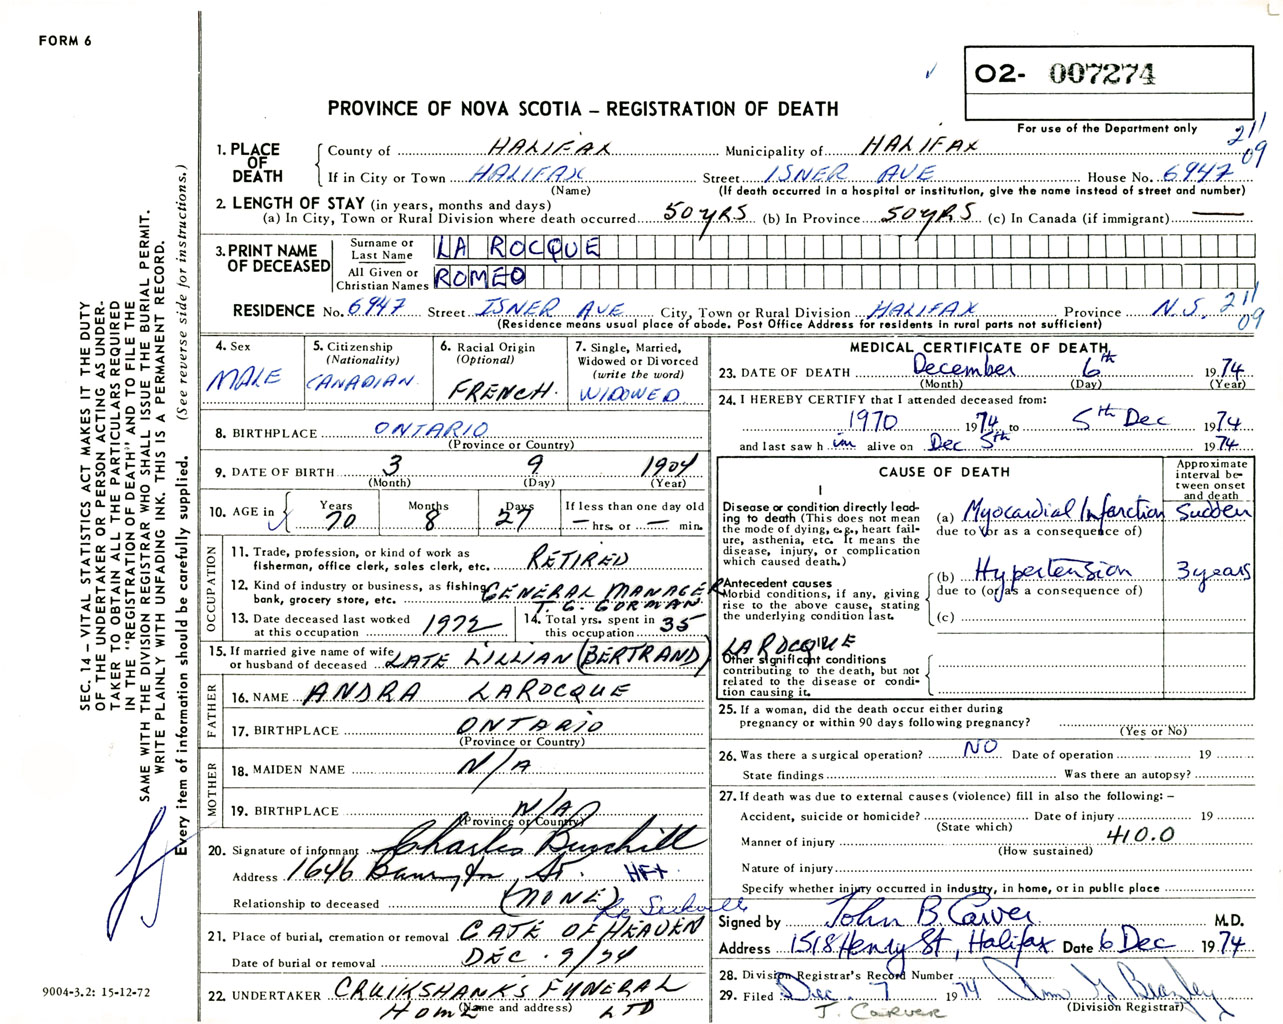 FORM 6
O2- 007274
PROVINCE OF NOVA SCOTIA – REGISTRATION OF DEATH
For use of the Department only
211
09
1. PLACE OF DEATH
County of HALIFAX Municipality of HALIFAX
If in City or Town HALIFAX Street ISNER AVE House No. 6947
(Name) (If death occurred in a hospital or institution, give the name instead of street and number)
2. LENGTH OF STAY (in years, months and days)
(a) In City, Town or Rural Division where death occurred 50 YRS (b) In Province 50 YRS (c) In Canada (if immigrant) —
3. PRINT NAME OF DECEASED
Surname or Last Name LA ROCQUE
All Given or Christian Names ROMEO
RESIDENCE No. 6947 Street ISNER AVE City, Town or Rural Division HALIFAX Province N.S. 211
09
(Residence means usual place of abode. Post Office Address for residents in rural parts not sufficient)
4. Sex
MALE
5. Citizenship
(Nationality)
CANADIAN
6. Racial Origin
(Optional)
FRENCH.
7. Single, Married,
Widowed or Divorced
(write the word)
WIDOWED
8. BIRTHPLACE ONTARIO
(Province or Country)
9. DATE OF BIRTH 3 9 1904
(Month) (Day) (Year)
10. AGE in
Years 70
Months 8
Days 27
If less than one day old
— hrs. or — min.
OCCUPATION
11. Trade, profession, or kind of work as
fisherman, office clerk, sales clerk, etc. RETIRED
12. Kind of industry or business, as fishing
bank, grocery store, etc. GENERAL MANAGER
T. G. GORMAN
13. Date deceased last worked
at this occupation 1972
14. Total yrs. spent in
this occupation 35
15. If married give name of wife
or husband of deceased LATE LILLIAN (BERTRAND)
FATHER
16. NAME ANDRA LAROCQUE
17. BIRTHPLACE ONTARIO
(Province or Country)
MOTHER
18. MAIDEN NAME N/A
19. BIRTHPLACE N/A
(Province or Country)
20. Signature of informant Charles Burchill
Address 1646 Barrington St. HFX
Relationship to deceased (NONE)
21. Place of burial, cremation or removal GATE OF HEAVEN
Date of burial or removal DEC. 9/74
22. UNDERTAKER CRUIKSHANKS FUNERAL
HOME LTD
(Name and address)
MEDICAL CERTIFICATE OF DEATH
23. DATE OF DEATH December 6th 1974
(Month) (Day) (Year)
24. I HEREBY CERTIFY that I attended deceased from:
1970 1974 to 5th Dec 1974
and last saw h im alive on Dec 5th 1974
CAUSE OF DEATH
Approximate interval between onset and death
I
Disease or condition directly leading
to death (This does not mean
the mode of dying, e.g., heart failure,
asthenia, etc. It means the
disease, injury, or complication
which caused death.)
(a) Myocardial Infarction Sudden
due to (or as a consequence of)
Antecedent causes
Morbid conditions, if any, giving
rise to the above cause, stating
the underlying condition last.
(b) Hypertension 3 years
due to (or as a consequence of)
(c)
LAROCQUE
Other significant conditions
contributing to the death, but not
related to the disease or condition
causing it.
25. If a woman, did the death occur either during
pregnancy or within 90 days following pregnancy?
(Yes or No)
26. Was there a surgical operation? NO Date of operation 19
State findings Was there an autopsy?
27. If death was due to external causes (violence) fill in also the following: –
Accident, suicide or homicide? Date of injury 19
(State which)
Manner of injury 410.0
(How sustained)
Nature of injury
Specify whether injury occurred in industry, in home, or in public place
Signed by John B. Carver M.D.
Address 1518 Henry St, Halifax Date 6 Dec 1974
28. Division Registrar's Record Number
29. Filed Dec. 7 1974
(Division Registrar)
J. CARVER
SEC. 14 – VITAL STATISTICS ACT MAKES IT THE DUTY
OF THE UNDERTAKER OR PERSON ACTING AS UNDER-
TAKER TO OBTAIN ALL THE PARTICULARS REQUIRED
IN THE "REGISTRATION OF DEATH" AND TO FILE THE
SAME WITH THE DIVISION REGISTRAR WHO SHALL ISSUE THE BURIAL PERMIT.
WRITE PLAINLY WITH UNFADING INK. THIS IS A PERMANENT RECORD.
Every item of information should be carefully supplied. (See reverse side for instructions.)
9004-3.2: 15-12-72